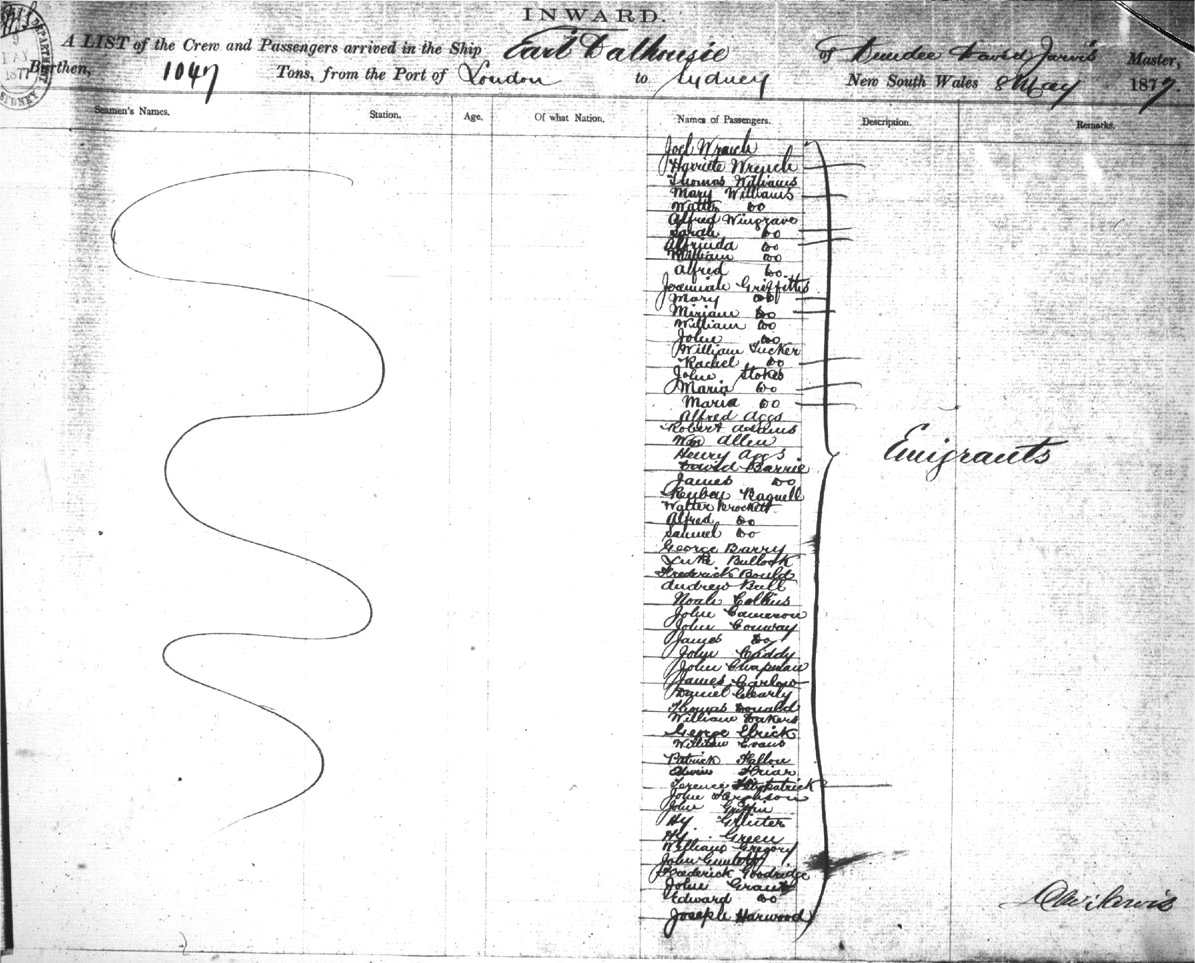 INWARD.
A LIST of the Crew and Passengers arrived in the Ship Earl Dalhousie of Dundee David Jarvis Master,
Burthen, 1047 Tons, from the Port of London to Sydney New South Wales 8 May 1877.
Seamen's Names. Station. Age. Of what Nation. Names of Passengers. Description. Remarks.
Joel Wrench
Harriete Wrench
Thomas Williams
Mary Williams
Walter Do
Alfred Wingrave
Sarah Do
Do
William Do
Alfred Do
Jeremiah Griffiths
Mary Do
Miriam Do
William Do
John Do
William Tucker
Rachel Do
John Stokes
Maria Do
Maria Do
Alfred Aggs
Robert
Wm Allen
Henry Aggs
David Barrie
James Do
Bagnell
Walter Brockett
Alfred Do
Samuel Do
George Barry
Luke Bullock
Frederick Bould
Andrew Bell
Noah Collins
John Cameron
John Conway
James Do
John Caddy
John Chapman
James Carlow
Daniel Clearly
Thomas Donald
William Dakers
George Elrick
William Evans
Patrick Fallon
Friar
Terence Fitzpatrick
John
John Griffin
Hy
Hy Green
William Gregory
John
Frederick Goodridge
John Grant
Edward Do
Joseph Harwood
Emigrants
Jarvis